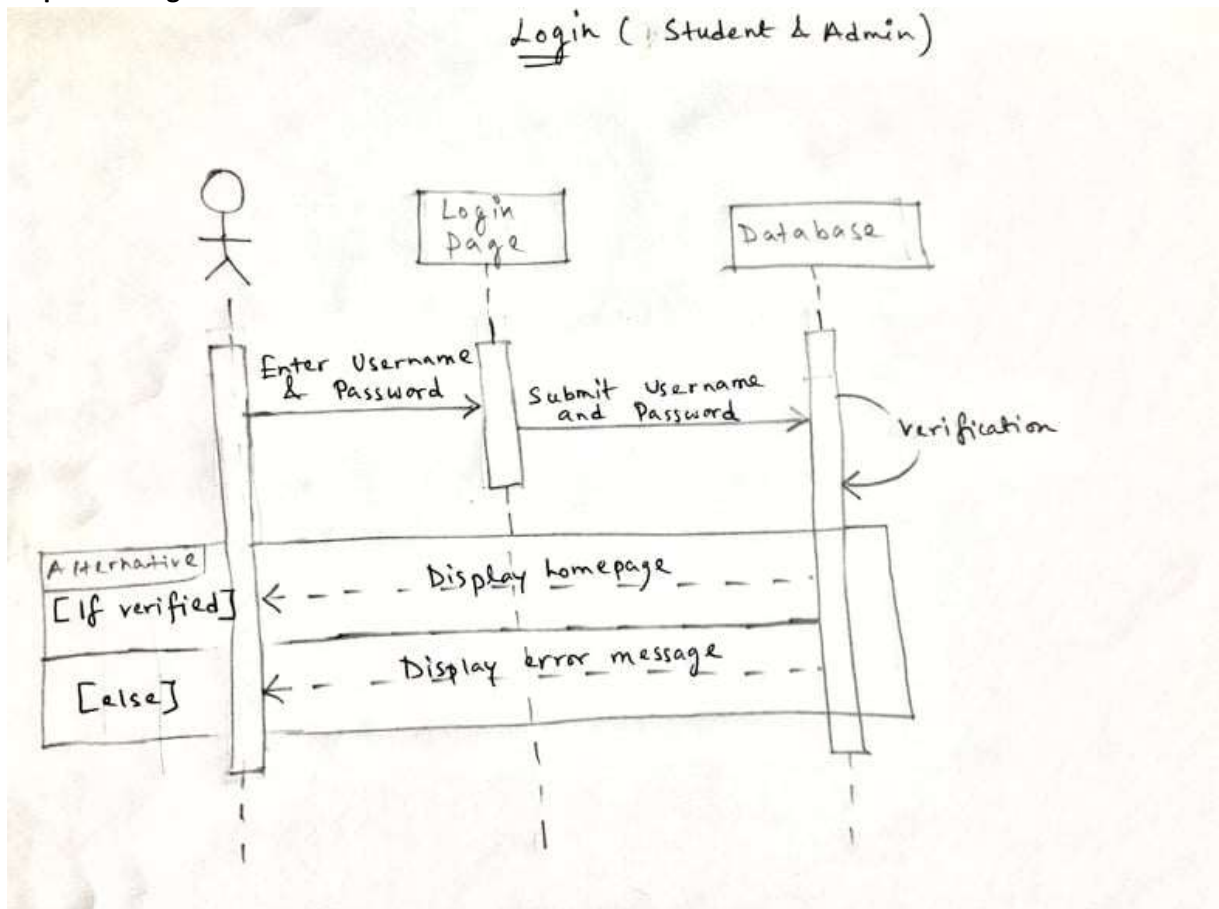 Login (Student & Admin)
Login
page
Database
Enter Username
& Password
Submit Username
and Password
verification
Alternative
[If verified]
Display homepage
[else]
Display error message